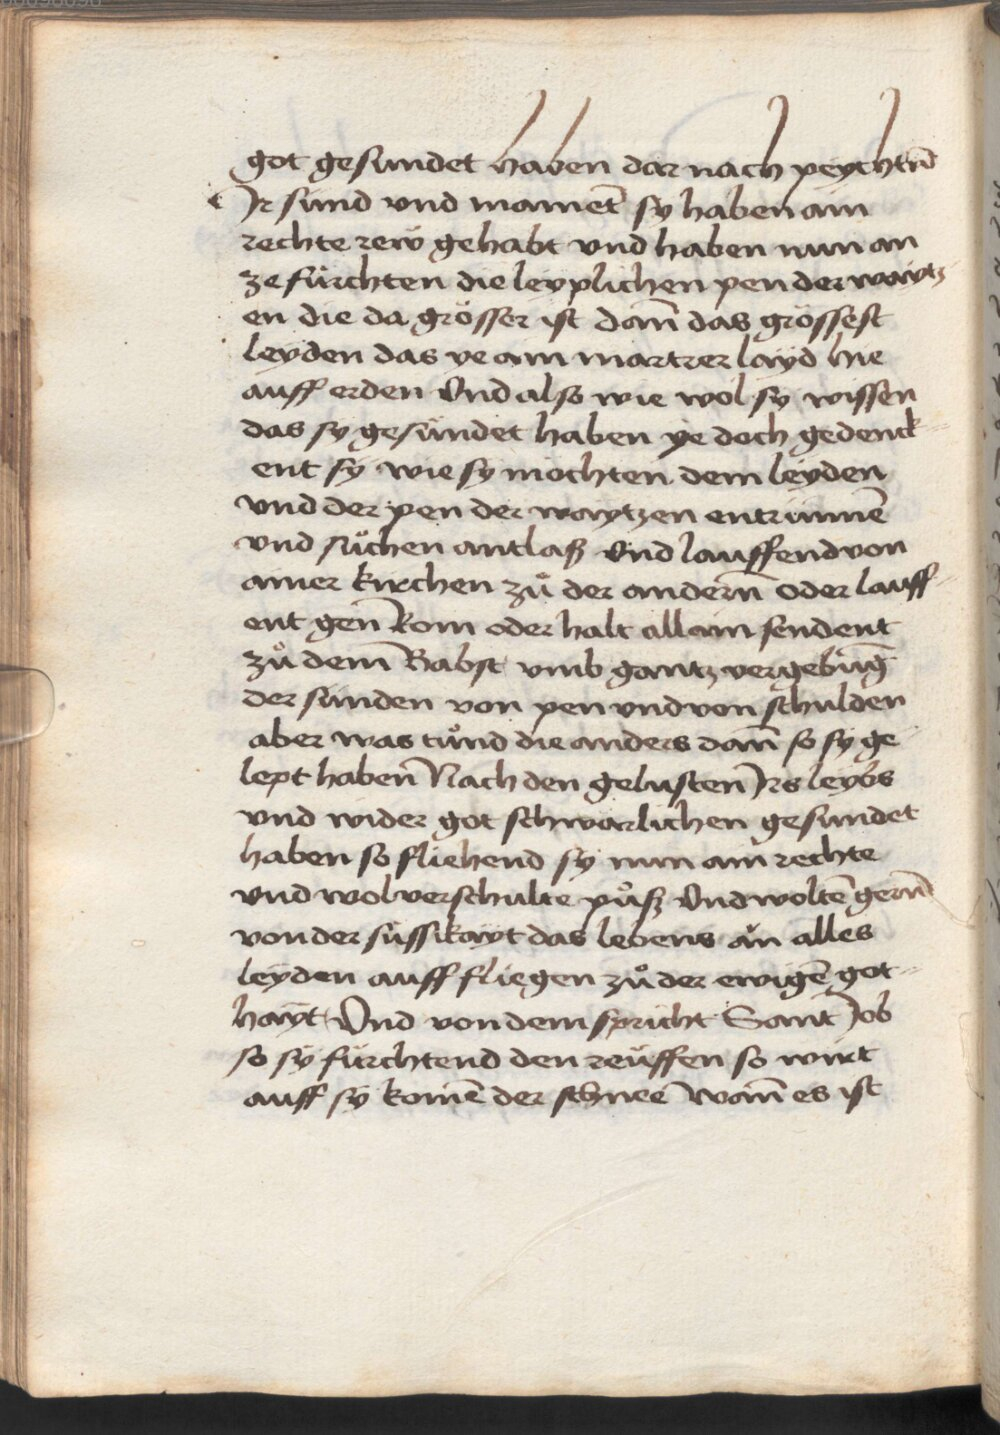 got gesundet haben dar nach peychtn̄d
Ir sünd vnd mainet̄ sy haben ain
rechte rew gehabt vnd haben nun an
ze fürchten die leyplichen pen der waytz
en die da grösser ist dan̄ das grössest
leyden das ye ain martrer layd hie
auff erden Vnd also wie wol sy wissen
das sy gesündet haben ye doch gedenck-
ent sy wie sy möchten dem leyden
vnd der pen der waytzen entrinnē
vnd sůchen antlaß Vnd lauffend von
ainer kirchen zů der andern̄ oder lauff-
ent gen̄ Rom oder halt allain sendent
zů dem̄ Babst vmb gantz vergebūg
der sünden von pen vnd von schulden
aber was tůnd die anders dan̄ so sy ge
lept haben̄ Nach den gelusten Irs leybs
vnd wider got schwarlichen gesundet
haben so fliehend sy nun ain rechte
vnd wol verschulte půß Vnd woltē gern̄
von der süssikayt das lebens an alles
leyden auff fliegen zů der ewigē got-
hayt Vnd von dem spricht Sant Iob
so sy fürchtend den reuffen so wirt
auff sy komē der schnee wan̄ es ist